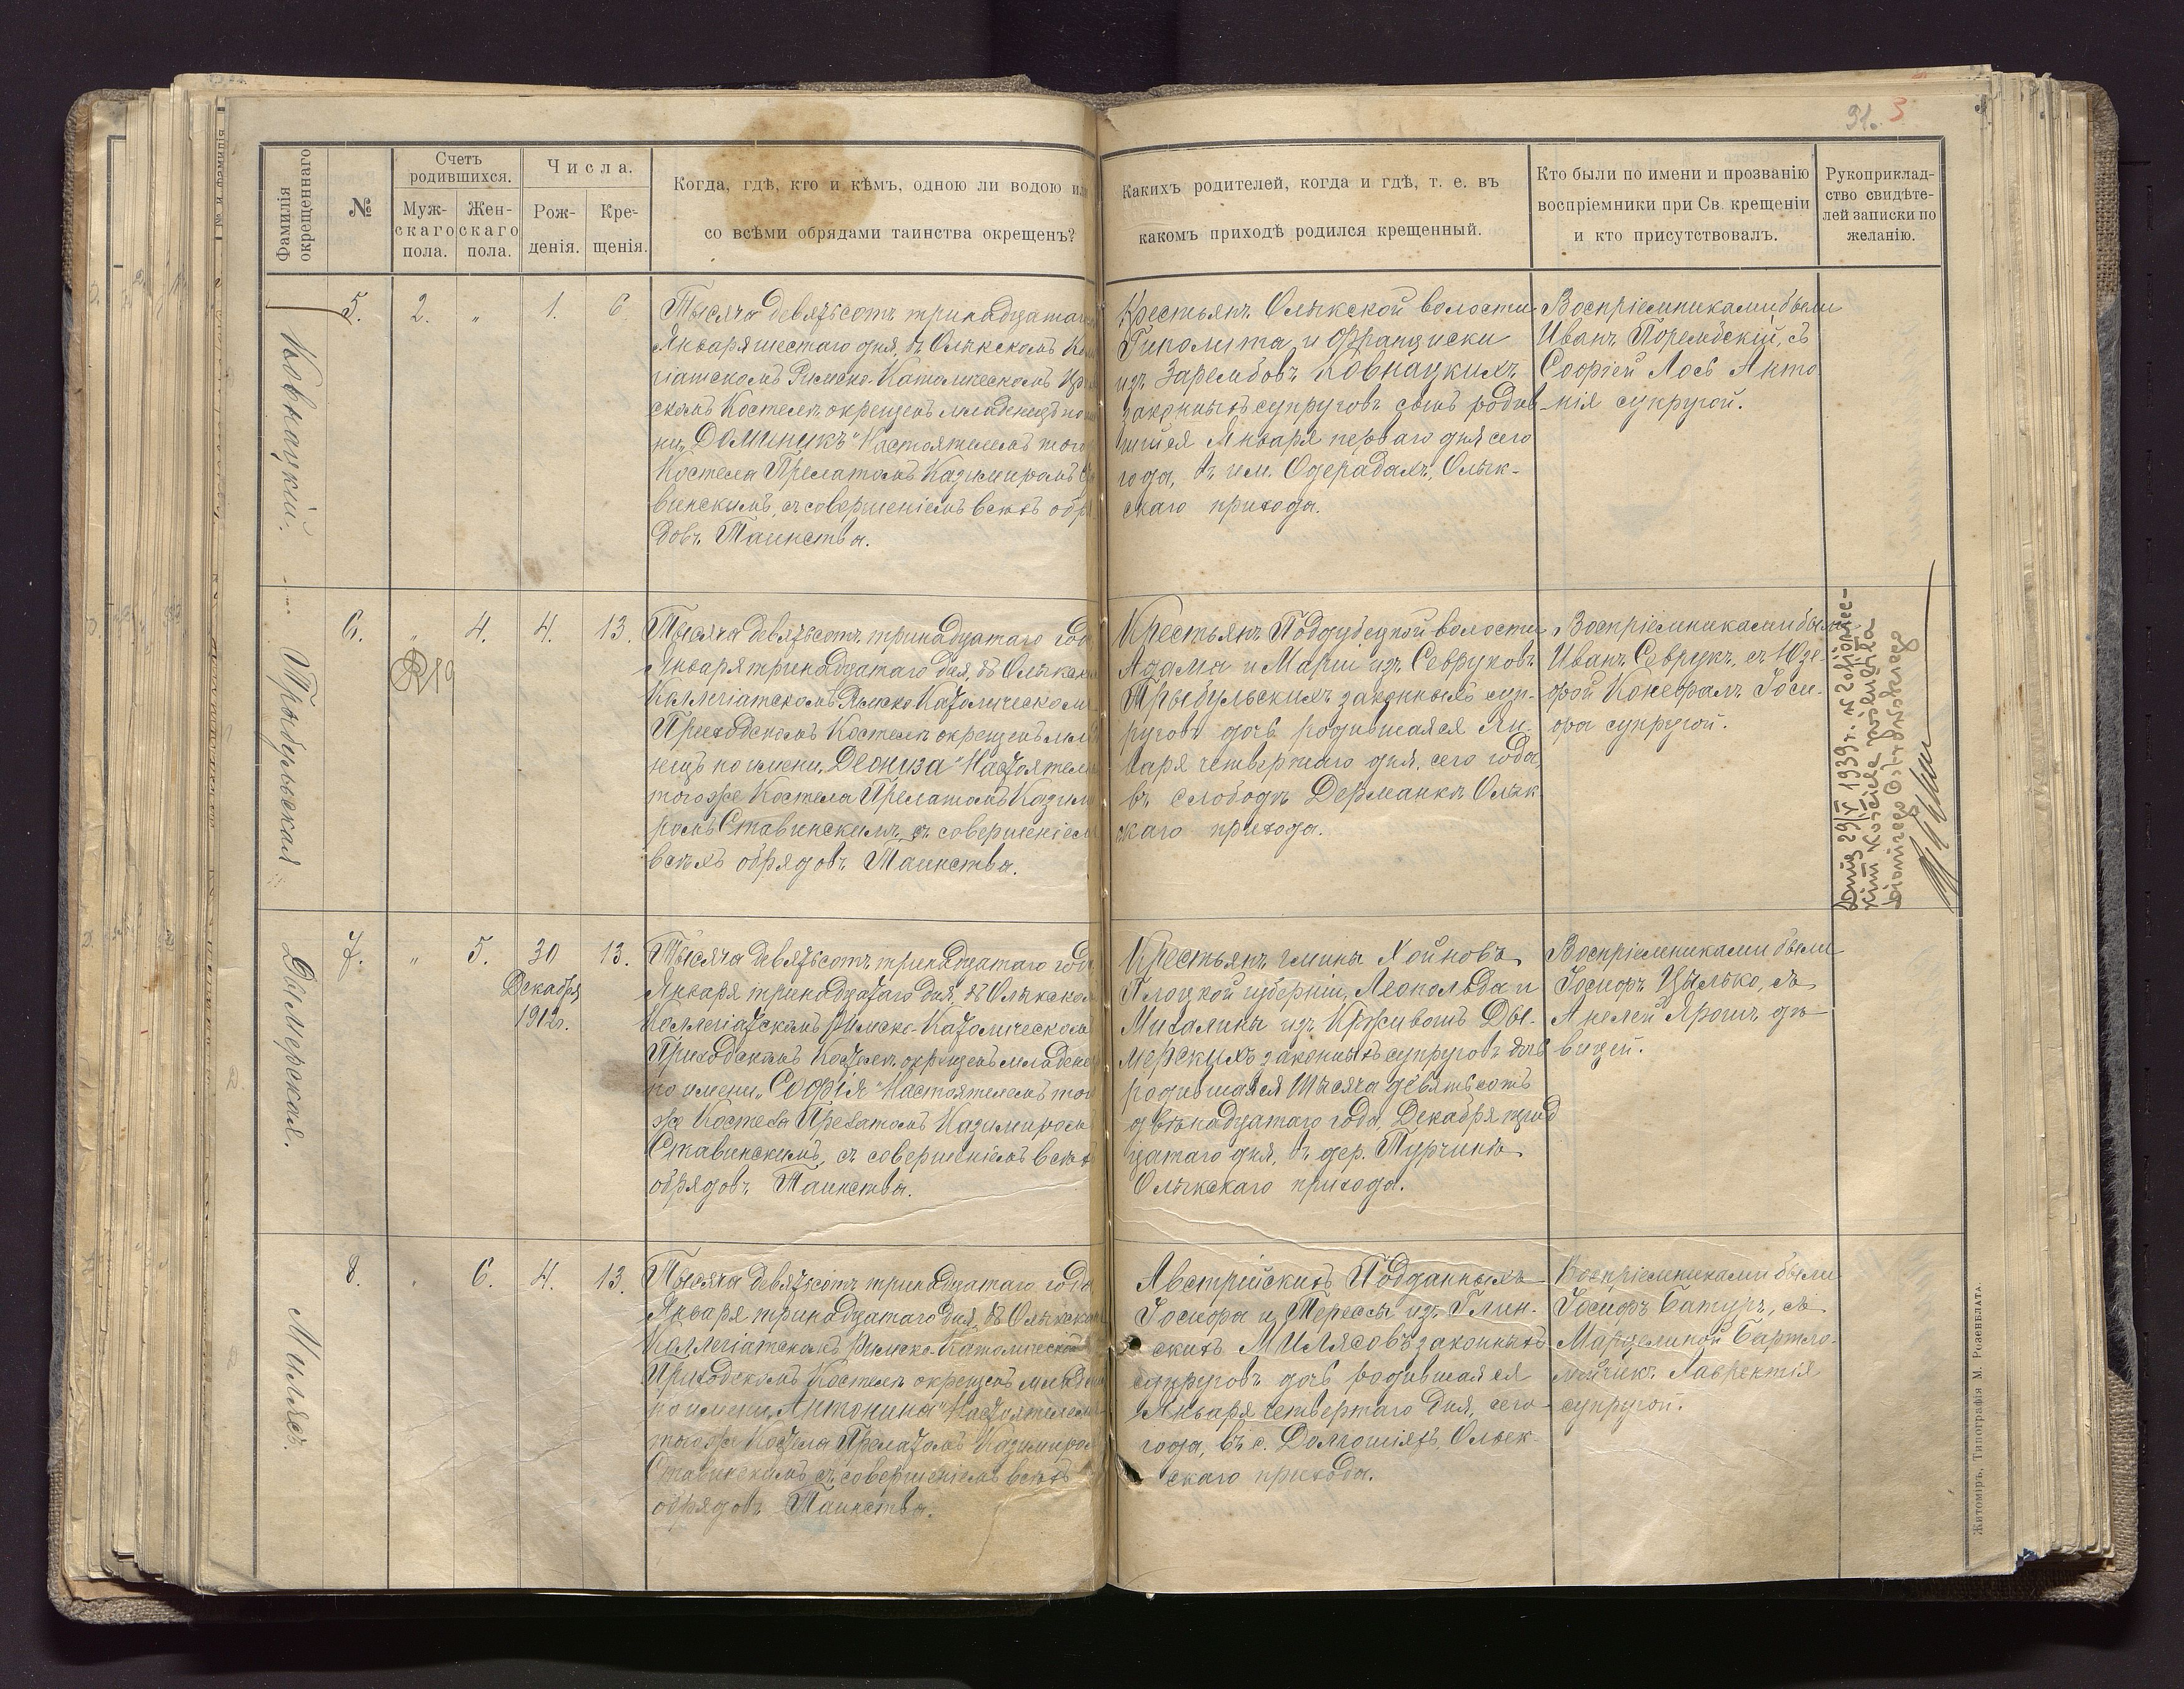 91. 3
Фамилія
окрещеннаго
№
Счетъ
родившихся.
Муж-
скаго
пола.
Жен-
скаго
пола.
Числа.
Рож-
денія.
Кре-
щенія.
Когда, гдѣ, кто и кѣмъ, одною ли водою или
со всѣми обрядами таинства окрещенъ?
Какихъ родителей, когда и гдѣ, т. е. въ
какомъ приходѣ родился крещенный.
Кто были по имени и прозванію
воспріемники при Св. крещеніи
и кто присутствовалъ.
Рукоприклад-
ство свидѣте-
лей записки по
желанію.
Ковнацкій.
5. 2. „ 1. 6.
Тысяча девятьсотъ тринадцатаго
Января шестаго дня, въ Олыкскомъ
гіатскомъ Римско-Католическомъ
скомъ Костелѣ окрещенъ младенецъ по
ни „Доминикъ" Настоятелемъ того
Костела Прелатомъ Казимиромъ
винскимъ, съ совершеніемъ всѣхъ обря
довъ Таинства.
Крестьянъ Олыкской волости
Гиполита и Франциски
изъ Зарембовъ Ковнацкихъ
законныхъ супруговъ сынъ родив-
шійся Января перваго дня сего
года, въ им. Одерадахъ, Олык-
скаго прихода.
Воспріемниками были
Иванъ Порембскій, съ
Софіей Лось Анто
нія супругой.
Трыбульская
6. „ 4. 4. 13.
Тысяча девятьсотъ тринадцатаго года
Января тринадцатаго дня, въ Олыкском
Коллегіатскомъ Римско-Католическомъ
Приходскомъ Костелѣ окрещенъ мла
нецъ по имени „Деониза" Настоятелем
того же Костела Прелатомъ Казими
ромъ Ставинскимъ, съ совершеніем
всѣхъ обрядовъ Таинства.
Крестьянъ Поддубецкой волости
Адама и Маріи изъ Севруковъ
Трыбульскихъ законныхъ суп-
руговъ дочь родившаяся Ян-
варя четвертаго дня, сего года,
въ слободѣ Дерманкѣ Олык
скаго прихода.
Воспріемниками были
Иванъ Севрукъ, съ Юзе-
фой Конефалъ Іоси-
фа супругой.
Dnia 29/V 1939 r. w
kim Kościele
Дымерская.
7. „ 5. 30 13.
Декабря
1912г.
Тысяча девятьсотъ тринадцатаго года
Января тринадцатаго дня, въ Олыкском
Коллегіатскомъ Римско-Католическомъ
Приходскомъ Костелѣ окрещенъ младене
по имени „Софія" Настоятелемъ того
же Костела Прелатомъ Казимиромъ
Ставинскимъ, съ совершеніемъ всѣхъ
обрядовъ Таинства.
Крестьянъ гмины Хойновъ
Плоцкой губерніи, Леопольда и
Михалины изъ Кршивошъ Ды-
мерскихъ законныхъ супруговъ дочь
родившаяся тысяча девятьсотъ
двѣнадцатаго года, Декабря трид
цатаго дня, въ дер. Турчинѣ
Олыкскаго прихода.
Воспріемниками были
Іосифъ Цылько, съ
Анелей Ярошъ дѣ-
вицей.
Милясъ.
8. „ 6. 4. 13.
Тысяча девятьсотъ тринадцатаго года
Января тринадцатаго дня, въ Олыкском
Коллегіатскомъ Римско-Католическом
Приходскомъ Костелѣ окрещенъ младен
по имени „Антонина" Настоятелемъ
того же Костела Прелатомъ Казимиром
Ставинскимъ, съ совершеніемъ всѣхъ
обрядовъ Таинства.
Австрійскихъ Подданныхъ
Іосифа и Терессы изъ Глин-
скихъ Милясовъ законныхъ
супруговъ дочь родившаяся
Января четвертаго дня, сего
года, въ с. Долгошіяхъ, Олык-
скаго прихода.
Воспріемниками были
Іосифъ Батуръ, съ
Марцелиной Бартло-
мейчикъ Лаврентія
супругой.
Житоміръ, Типографія М. Розенблата.